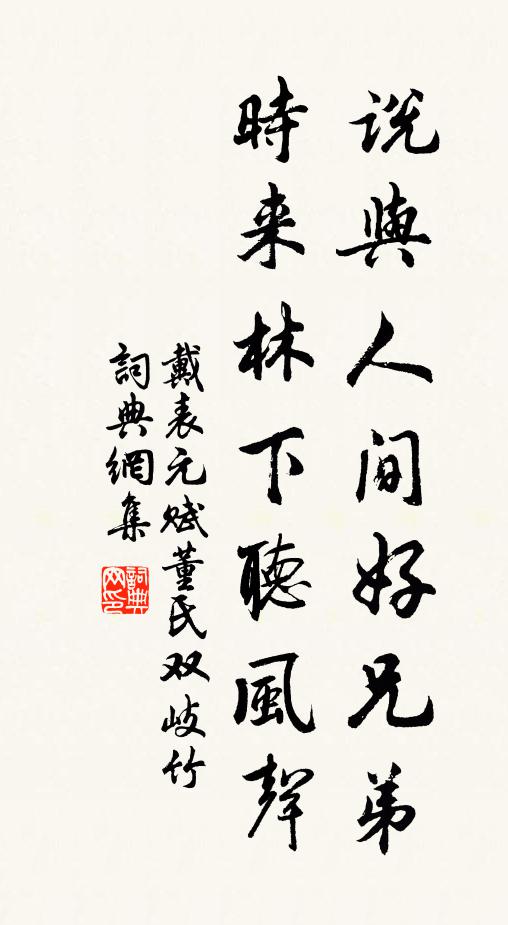 說與人间好兄弟
時来林下聽風聲
戴表元赋董氏双岐竹
詞典網集
詞典網印